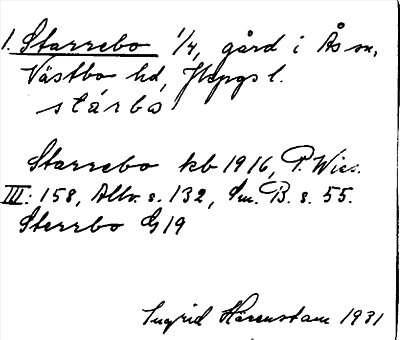 1. Starrebo 1/4, gård i Ås sn,
Västbo hd, Jkpgs l.
stárbo
Starrebo kb 1916, P. Wies.
III: 158, Allv. s. 132, Sm. B. s. 55.
Sterrbo G 19
Ingrid Härenstam 1931